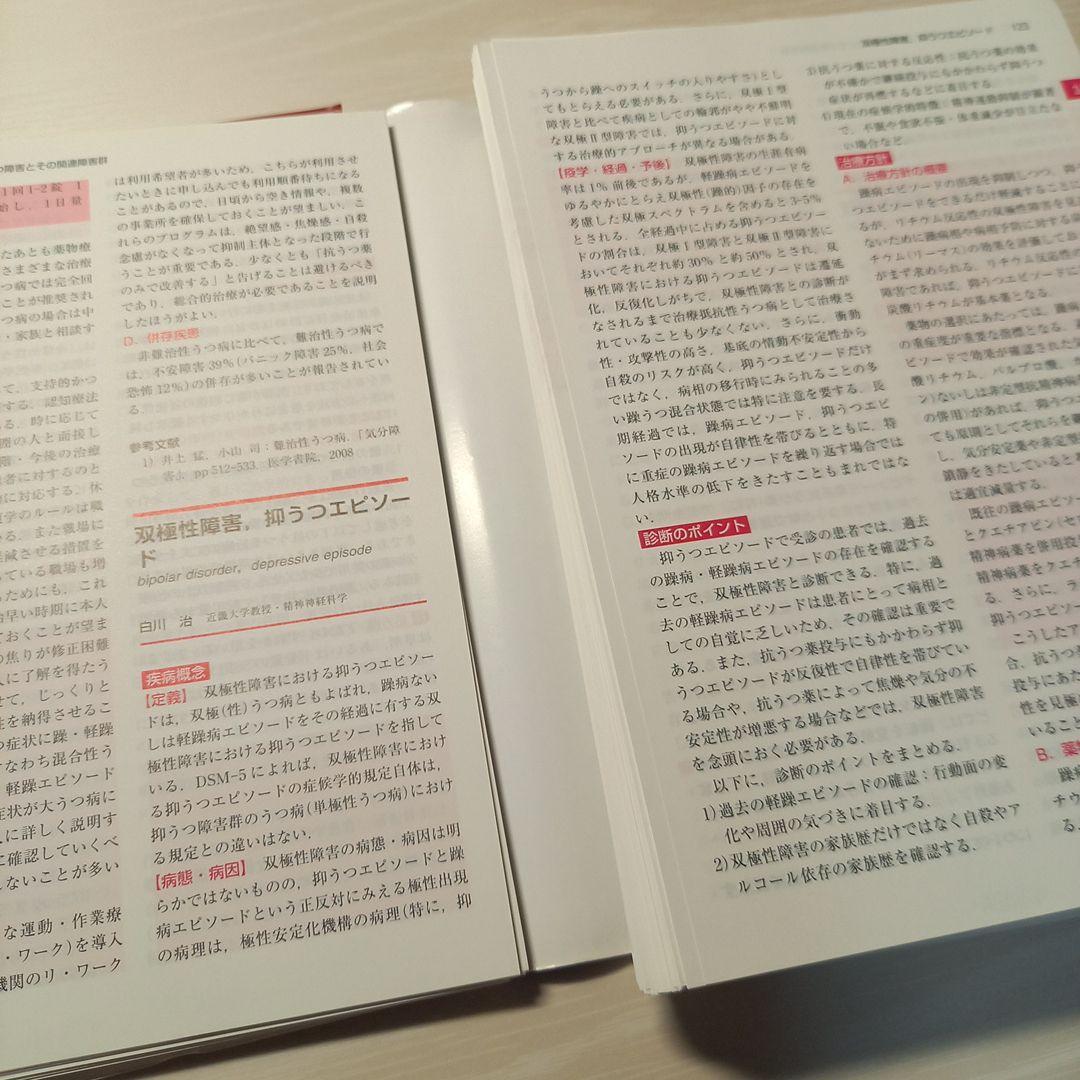 障害とその関連障害群
1回1-2錠 1
始し,1日量
たあとも薬物療
さまざまな治療
つ病では完全回
ことが推奨され
つ病の場合は中
・家族と相談す
て,支持的かつ
する.認知療法
ある.時に応じて
圏の人と面接し
階・今後の治療
患者に対するのと
的に対応する.休
復学のルールは職
る.また職場に
軽減させる措置を
っている職場も増
るためにも,これ
治早い時期に本人
ておくことが望ま
の焦りが修正困難
人に了解を得たう
せて,じっくりと
性を納得させるこ
つ症状に躁・軽躁
すなわち混合性う
軽躁エピソード
症状が大うつ病に
人に詳しく説明す
に確認していくべ
れないことが多い
な運動・作業療
・ワーク)を導入
機関のリ・ワーク
は利用希望者が多いため,こちらが利用させ
たいときに申し込んでも利用順番待ちになる
ことがあるので,日頃から空き情報や,複数
の事業所を確保しておくことが望ましい.こ
れらのプログラムは,絶望感・焦燥感・自殺
念慮がなくなって抑制主体となった段階で行
うことが重要である.少なくとも「抗うつ薬
のみで改善する」と告げることは避けるべき
であり,総合的治療が必要であることを説明
したほうがよい.
D. 併存疾患
非難治性うつ病に比べて,難治性うつ病で
は,不安障害39%(パニック障害25%,社会
恐怖12%)の併存が多いことが報告されてい
る.
参考文献
1) 井上 猛,小山 司:難治性うつ病.「気分障
害」pp 512-533,医学書院,2008
双極性障害,抑うつエピソー
ド
bipolar disorder, depressive episode
白川 治 近畿大学教授・精神神経科学
疾病概念
【定義】 双極性障害における抑うつエピソー
ドは,双極(性)うつ病ともよばれ,躁病ない
しは軽躁病エピソードをその経過に有する双
極性障害における抑うつエピソードを指して
いる.DSM-5によれば,双極性障害におけ
る抑うつエピソードの症候学的規定自体は,
抑うつ障害群のうつ病(単極性うつ病)におけ
る規定との違いはない.
【病態・病因】 双極性障害の病態・病因は明
らかではないものの,抑うつエピソードと躁
病エピソードという正反対にみえる極性出現
の病理は,極性安定化機構の病理(特に,抑
双極性障害,抑うつエピソード 123
うつから躁へのスイッチの入りやすさ)とし
てもとらえる必要がある.さらに,双極Ⅰ型
障害と比べて疾病としての輪郭がやや不鮮明
な双極Ⅱ型障害では,抑うつエピソードに対
する治療的アプローチが異なる場合がある.
【疫学・経過・予後】 双極性障害の生涯有病
率は1%前後であるが,軽躁病エピソードを
ゆるやかにとらえ双極性(躁的)因子の存在を
考慮した双極スペクトラムを含めると3-5%
とされる.全経過中に占める抑うつエピソー
ドの割合は,双極Ⅰ型障害と双極Ⅱ型障害に
おいてそれぞれ約30%と約50%とされ,双
極性障害における抑うつエピソードは遷延
化,反復化しがちで,双極性障害との診断が
なされるまで治療抵抗性うつ病として治療さ
れていることも少なくない.さらに,衝動
性・攻撃性の高さ,基底の情動不安定性から
自殺のリスクが高く,抑うつエピソードだけ
ではなく,病相の移行時にみられることの多
い躁うつ混合状態では特に注意を要する.長
期経過では,躁病エピソード,抑うつエピ
ソードの出現が自律性を帯びるとともに,特
に重症の躁病エピソードを繰り返す場合では
人格水準の低下をきたすこともまれではな
い.
診断のポイント
抑うつエピソードで受診の患者では,過去
の躁病・軽躁病エピソードの存在を確認する
ことで,双極性障害と診断できる.特に,過
去の軽躁病エピソードは患者にとって病相と
しての自覚に乏しいため,その確認は重要で
ある.また,抗うつ薬投与にもかかわらず抑
うつエピソードが反復性で自律性を帯びてい
る場合や,抗うつ薬によって焦燥や気分の不
安定性が増悪する場合などでは,双極性障害
を念頭におく必要がある.
以下に,診断のポイントをまとめる.
1)過去の軽躁エピソードの確認:行動面の変
化や周囲の気づきに着目する.
2)双極性障害の家族歴だけではなく自殺やア
ルコール依存の家族歴を確認する.
3)抗うつ薬に対する反応性:抗うつ薬の効果
が不確かで継続投与にもかかわらず抑うつ
症状が再燃するなどに着目する.
4)現在の症候学的特徴:精神運動抑制が顕著
で,不眠や食欲不振・体重減少が目立たな
い場合など.
治療方針
A. 治療方針の概要
躁病エピソードの出現を抑制しつつ,抑
つエピソードをできるだけ軽減することに
るが,リチウム反応性の双極性障害を見
ないために躁病相や病相予防に対する
チウム(リーマス)の効果を評価してお
がまず求められる.リチウム反応性の
障害であれば,抑うつエピソードに
炭酸リチウムが基本薬となる.
薬物の選択にあたっては,躁病
の重症度が重要な指標となる.
ピソードで効果が確認された気
酸リチウム,バルプロ酸,
ン)ないしは非定型抗精神病
の併用)があれば,抑うつ
ても原則としてそれらを継
し,気分安定薬や非定型
鎮静をきたしていると
は適宜減量する.
既往の躁病エピソー
とクエチアピン(セ
精神病薬を併用投
精神病薬をクエチ
る.さらに,ラ
抑うつエピソー
こうしたア
合,抗うつ
投与にあた
性を見極
いること
B. 薬
躁病
チウ